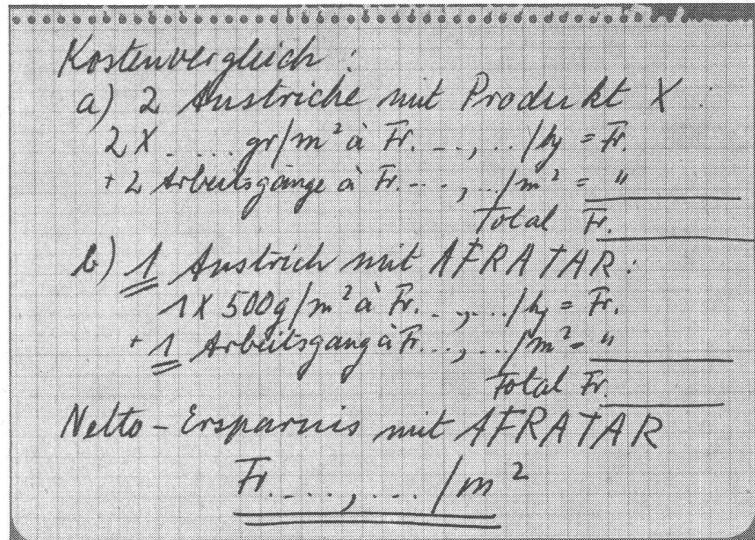 Kostenvergleich:
a) 2 Anstriche mit Produkt X:
2 X ..... gr/m² à Fr. ...,.../kg = Fr.
+ 2 Arbeitsgänge à Fr. ...,.../m² = "
Total Fr.
b) 1 Anstrich mit AFRATAR:
1 X 500g/m² à Fr. ...,.../kg = Fr.
+ 1 Arbeitsgang à Fr. ...,.../m² = "
Total Fr.
Netto-Ersparnis mit AFRATAR
Fr. ....,.../m²